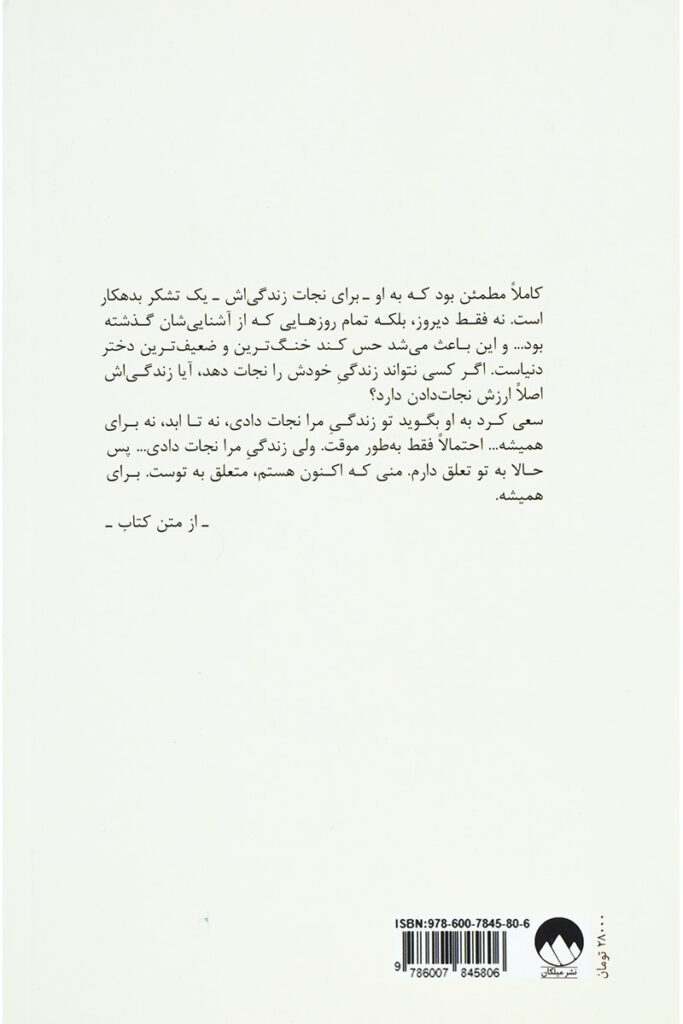 کاملاً مطمئن بود که به او ـ برای نجات زندگی‌اش ـ یک تشکر بدهکار
است. نه فقط دیروز، بلکه تمام روزهایی که از آشنایی‌شان گذشته
بود... و این باعث می‌شد حس کند خنگ‌ترین و ضعیف‌ترین دختر
دنیاست. اگر کسی نتواند زندگیِ خودش را نجات دهد، آیا زندگی‌اش
اصلاً ارزش نجات‌دادن دارد؟
سعی کرد به او بگوید تو زندگیِ مرا نجات دادی، نه تا ابد، نه برای
همیشه... احتمالاً فقط به‌طور موقت. ولی زندگی مرا نجات دادی... پس
حالا به تو تعلق دارم. منی که اکنون هستم، متعلق به توست. برای
همیشه.
ـ از متن کتاب ـ
ISBN:978-600-7845-80-6
9 786007 845806
نشر میلکان
۲۸۰۰۰ تومان